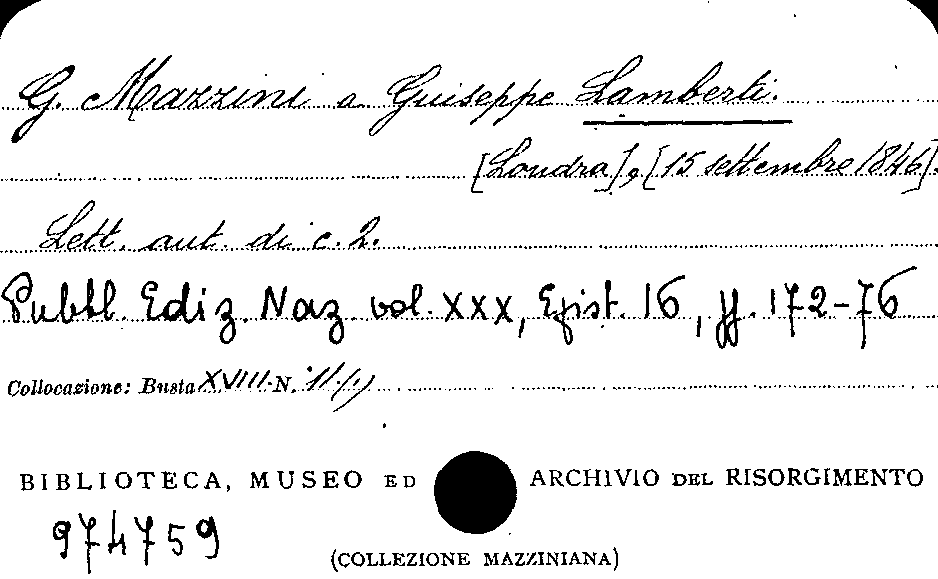 G. Mazzini a Guiseppe Lamberti.
[Londra], [15 settembre 1846].
Lett. aut. di c. 2.
Pubbl. Ediz. Naz. vol. XXX, Epist. 16, pp. 172-76
Collocazione: Busta XVIII N.
BIBLIOTECA, MUSEO ED ARCHIVIO DEL RISORGIMENTO
974759
(COLLEZIONE MAZZINIANA)